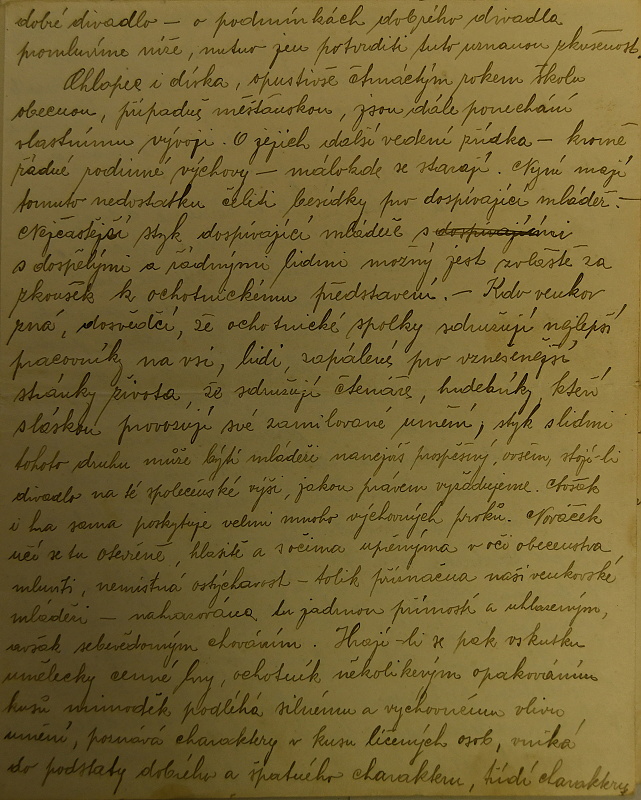 dobré divadlo — o podmínkách dobrého divadla
promluvíme níže, nutno jen potvrditi tuto uznanou zkušenost.
Chlapec i dívka, opustivše čtrnáctým rokem školu
obecnou, případně měšťanskou, jsou dále ponecháni
vlastnímu vývoji. O jejich další vedení zřídka — kromě
řádné rodinné výchovy — málokde se starají. Nyní mají
tomuto nedostatku čeliti besídky pro dospívající mládež. —
Nejčastější styk dospívající mládeže s dospívajícími
s dospělými a řádnými lidmi možný jest zvláště za
zkoušek k ochotnickému představení. — Kdo venkov
zná, dosvědčí, že ochotnické spolky sdružují nejlepší
pracovníky na vsi, lidi, zapálené pro vznešenější
stránky života, že sdružují čtenáře, hudebníky, kteří
s láskou provozují své zamilované umění; styk s lidmi
tohoto druhu může býti mládeži nanejvýš prospěšný, ovšem, stojí-li
divadlo na té společenské výši, jakou právem vyžadujeme. Avšak
i hra sama poskytuje velmi mnoho výchovných prvků. Nováček
učí se tu otevřeně, hlasitě a s očima upřenýma v oči obecenstva
mluviti, nemístná ostýchavost — tolik příznačná naší venkovské
mládeži — nahrazována tu jadrnou přímostí a uhlazeným,
avšak sebevědomým chováním. Hrají-li se pak vskutku
umělecky cenné hry, ochotník několikerým opakováním
kusů mimoděk podléhá silnému a výchovnému vlivu
umění, poznává charaktery v kusu líčených osob, vniká
do podstaty dobrého a špatného charakteru, třídí charaktery